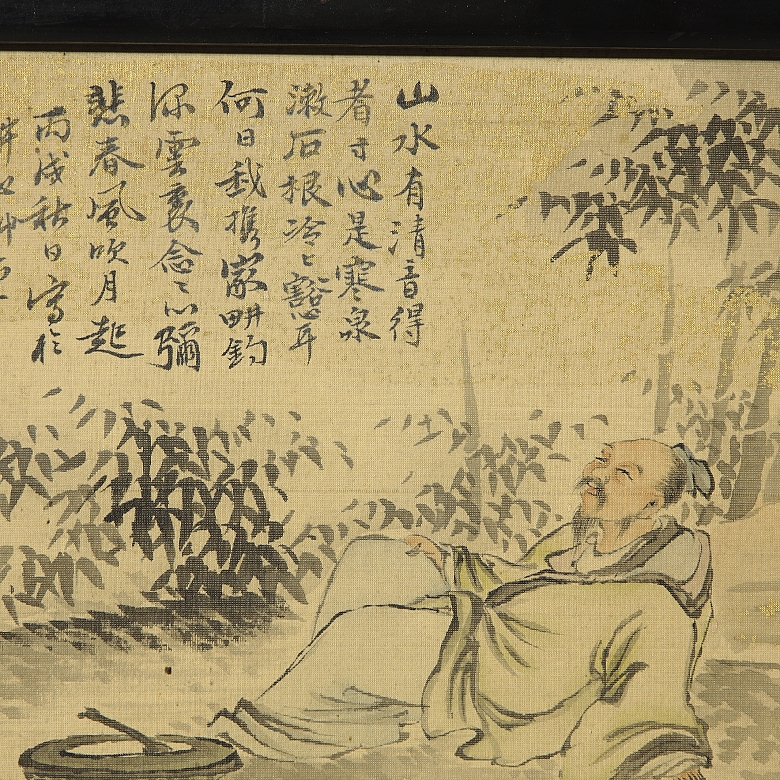 山水有清音得
者寸心是寒泉
漱石根冷〻豁耳
何日我携家畊釣
深雲裏念〻心彌
悲春風吹月起
丙戌秋日寫於